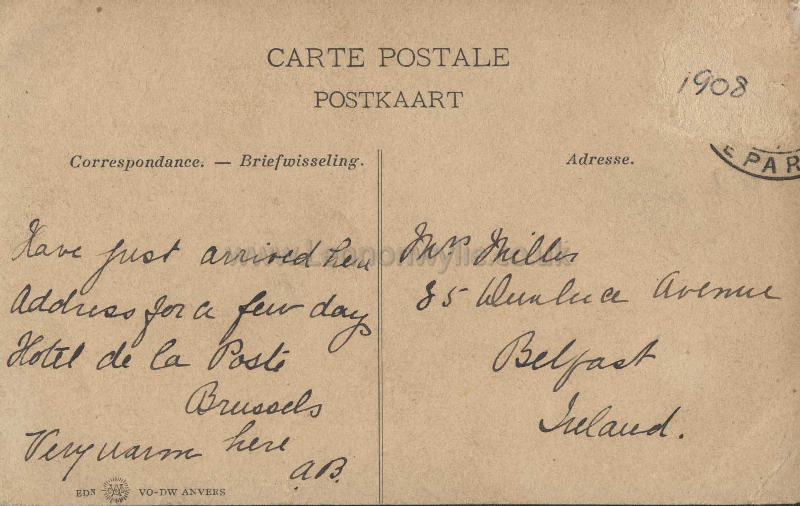 CARTE POSTALE
POSTKAART
1908
E PAR
Correspondance. — Briefwisseling.
Adresse.
Have just arrived here
Address for a few days
Hotel de la Poste
Brussels
Very warm here
A.B.
Mrs Miller
85 Dunluce Avenue
Belfast
Ireland.
EDN VO-DW ANVERS